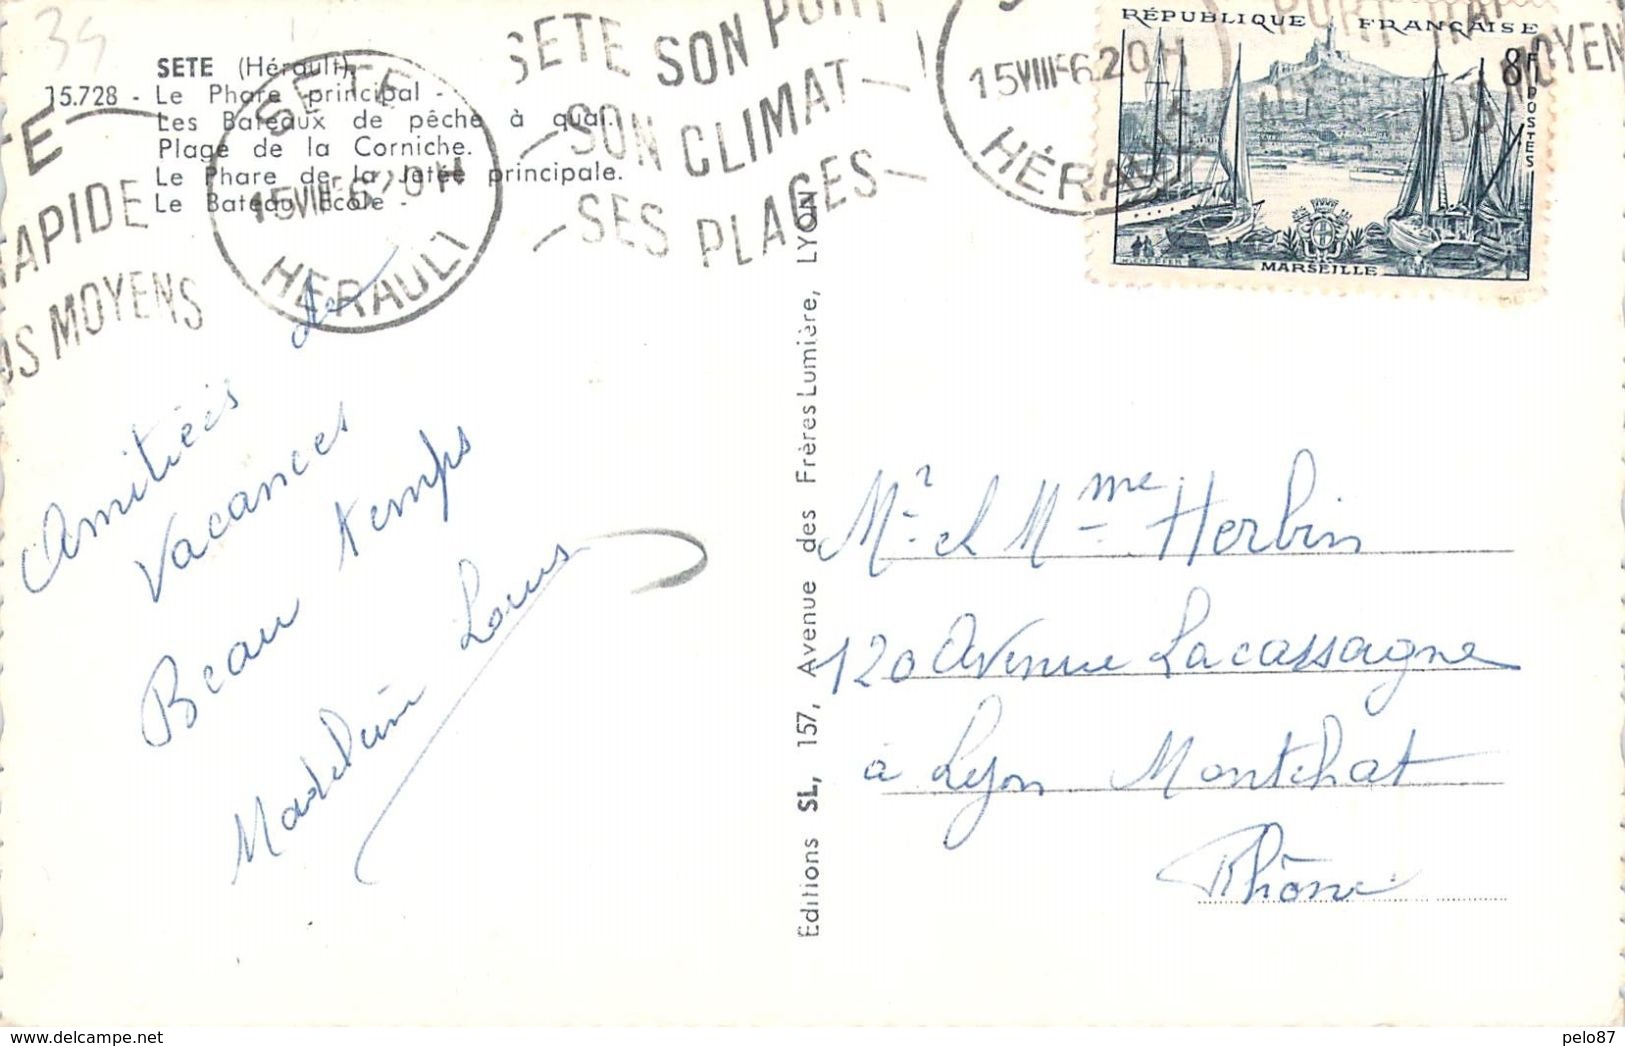 39
SETE (Hérault)
15.728 - Le Phare principal -
Les Bateaux de pêche à quai.
Plage de la Corniche.
Le Phare de la Jetée principale.
Le Bateau Ecole -
RAPIDE
MOYENS
SETE
15 VIII-6 20H
HÉRAULT
SETE SON PORT
SON CLIMAT
SES PLAGES
15 VIII-6 20H
HÉRAULT
MOYENS
RÉPUBLIQUE FRANÇAISE
8F
POSTES
MARSEILLE
Amitiéés de
Vacances
Beau temps
Madeleine Louis
Editions SL, 157, Avenue des Frères Lumière, LYON
Mr et Mme Herbin
120 Avenue Lacassagne
à Lyon Montchat
Rhône
www.delcampe.net
pelo87